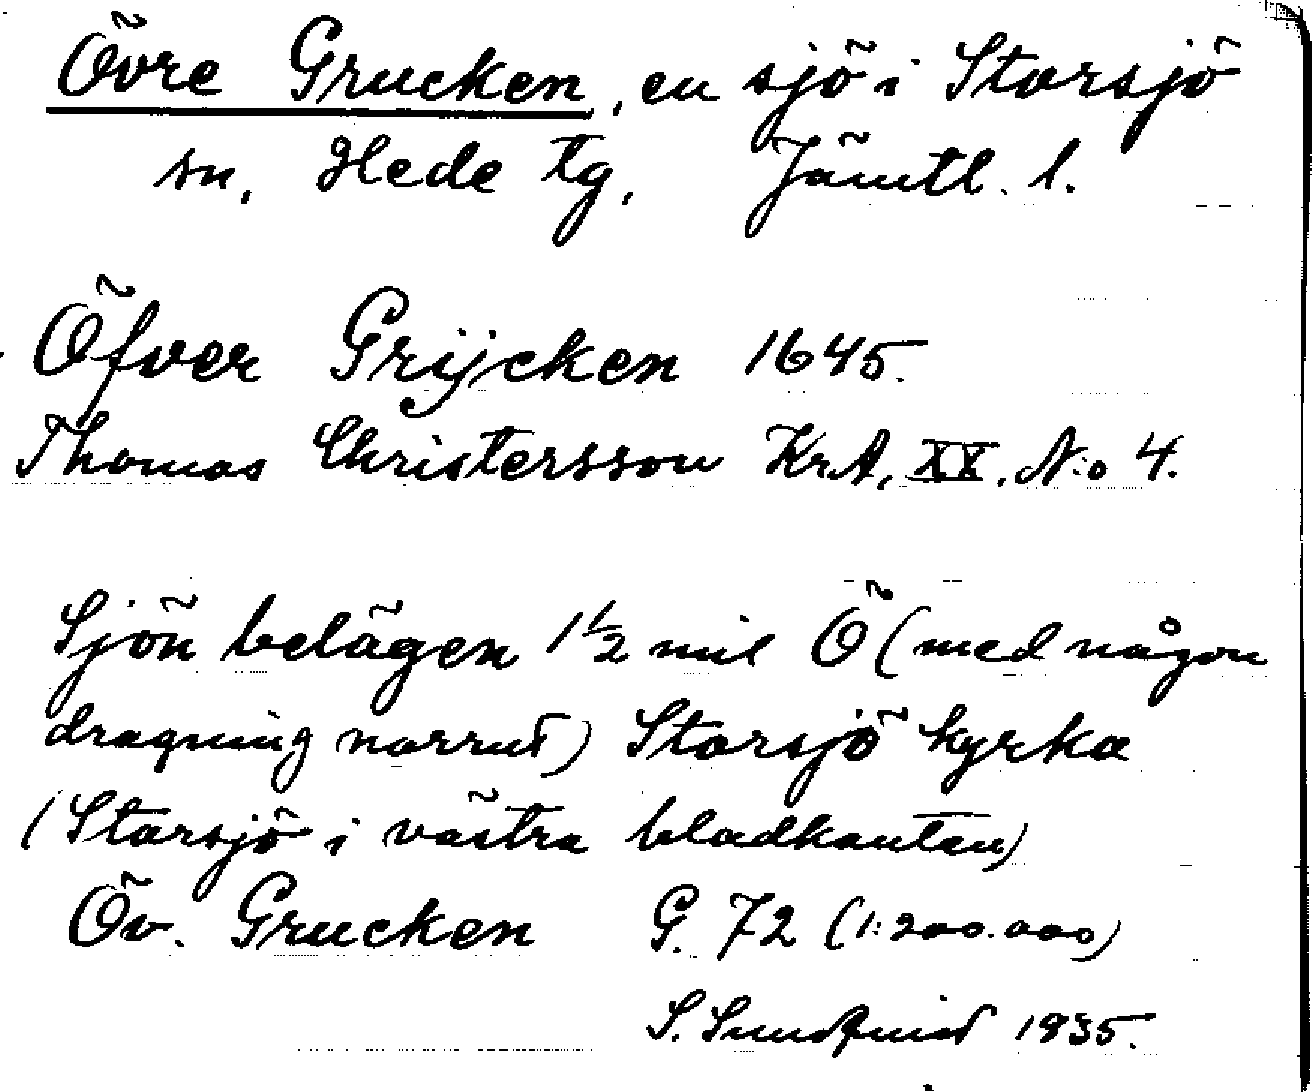 Övre Grucken, en sjö i Storsjö
sn, Hede tg, Jämtl. l.
Öfver Grijcken 1645.
Thomas Christersson KrA, XX, N:o 4.
Sjön belägen 1 1/2 mil Ö (med någon
dragning norrut) Storsjö kyrka
(Storsjö i västra bladkanten)
Öv. Grucken G. 72 (1:200.000)
S. Sundquist 1935.